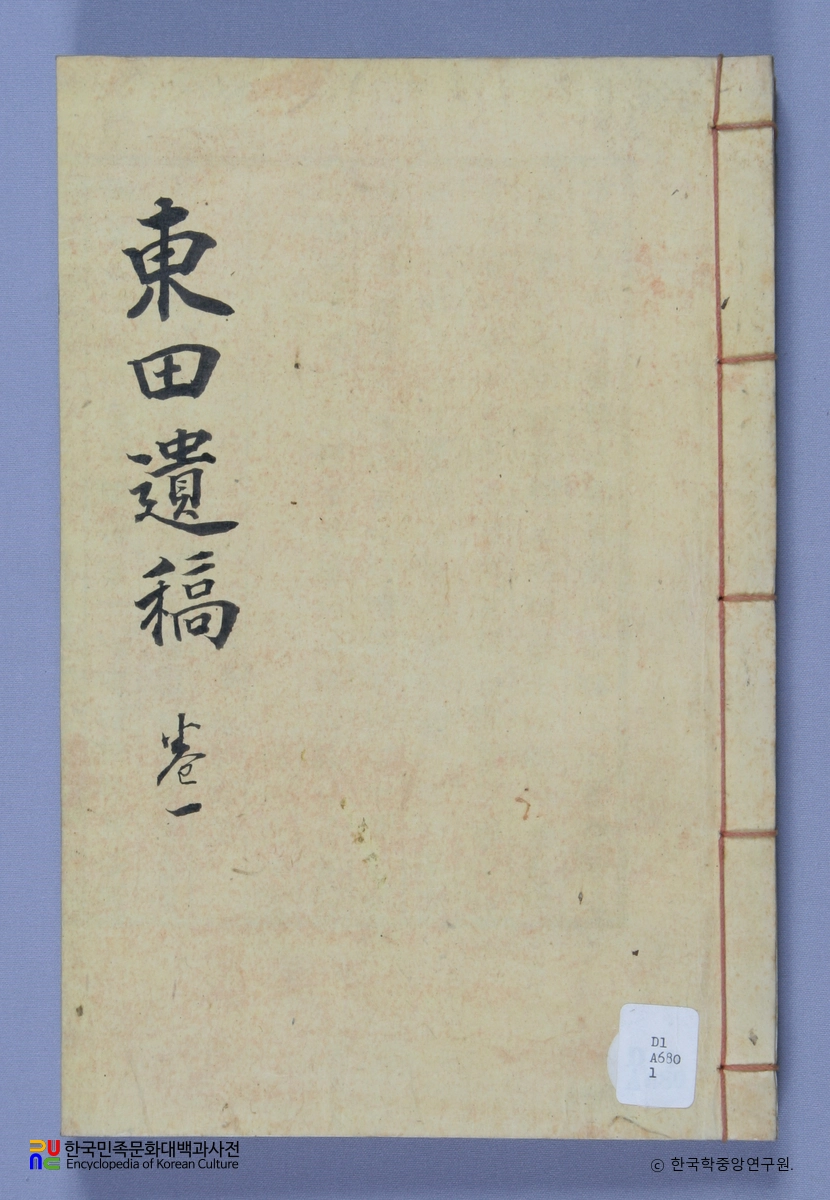 東田遺稿 卷一
D1
A680
1
한국민족문화대백과사전
Encyclopedia of Korean Culture
© 한국학중앙연구원.